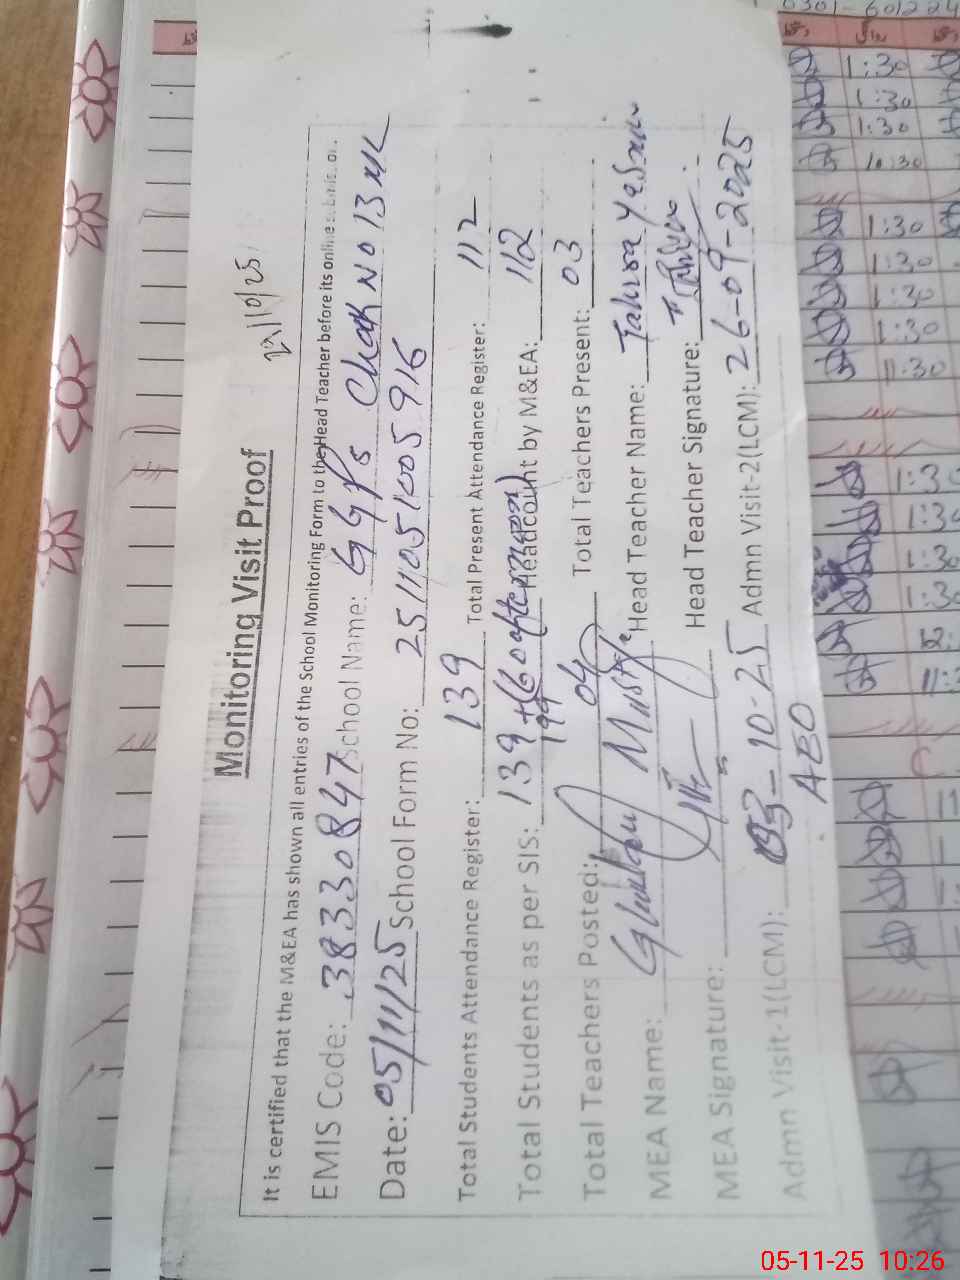 Monitoring Visit Proof
It is certified that the M&EA has shown all entries of the School Monitoring Form to the Head Teacher before its online
EMIS Code: 38330847 School Name: GGPS Chak No 13 ML
Date: 05/11/25 School Form No: 2511051005916
Total Students Attendance Register: 139 Total Present Attendance Register: 112
Total Students as per SIS: 139 + (60 afternoon) Headcount by M&EA: 112
199
Total Teachers Posted: 04 Total Teachers Present: 03
MEA Name: Ghulam Mustafa Head Teacher Name: Tahira Yasmin
MEA Signature: Head Teacher Signature:
Admn Visit-1(LCM): 03-10-25 Admn Visit-2(LCM): 26-09-2025
AEO
0301-601224
1:30
1:30
1:30
10:30
1:30
1:30
1:30
1:30
11:30
1:30
1:30
1:30
1:30
05-11-25 10:26